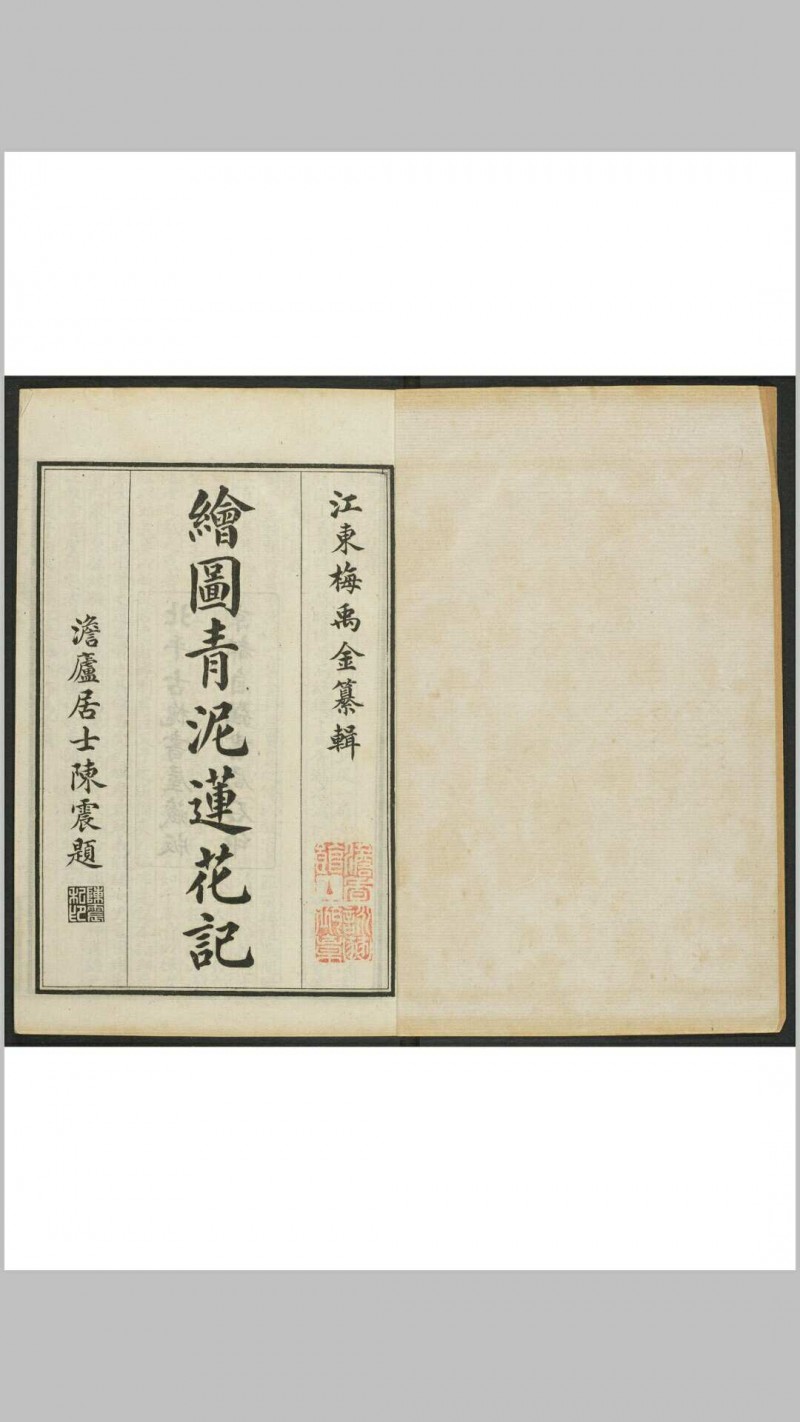 江東梅禹金纂輯
繪圖青泥蓮花記
澹廬居士陳震題